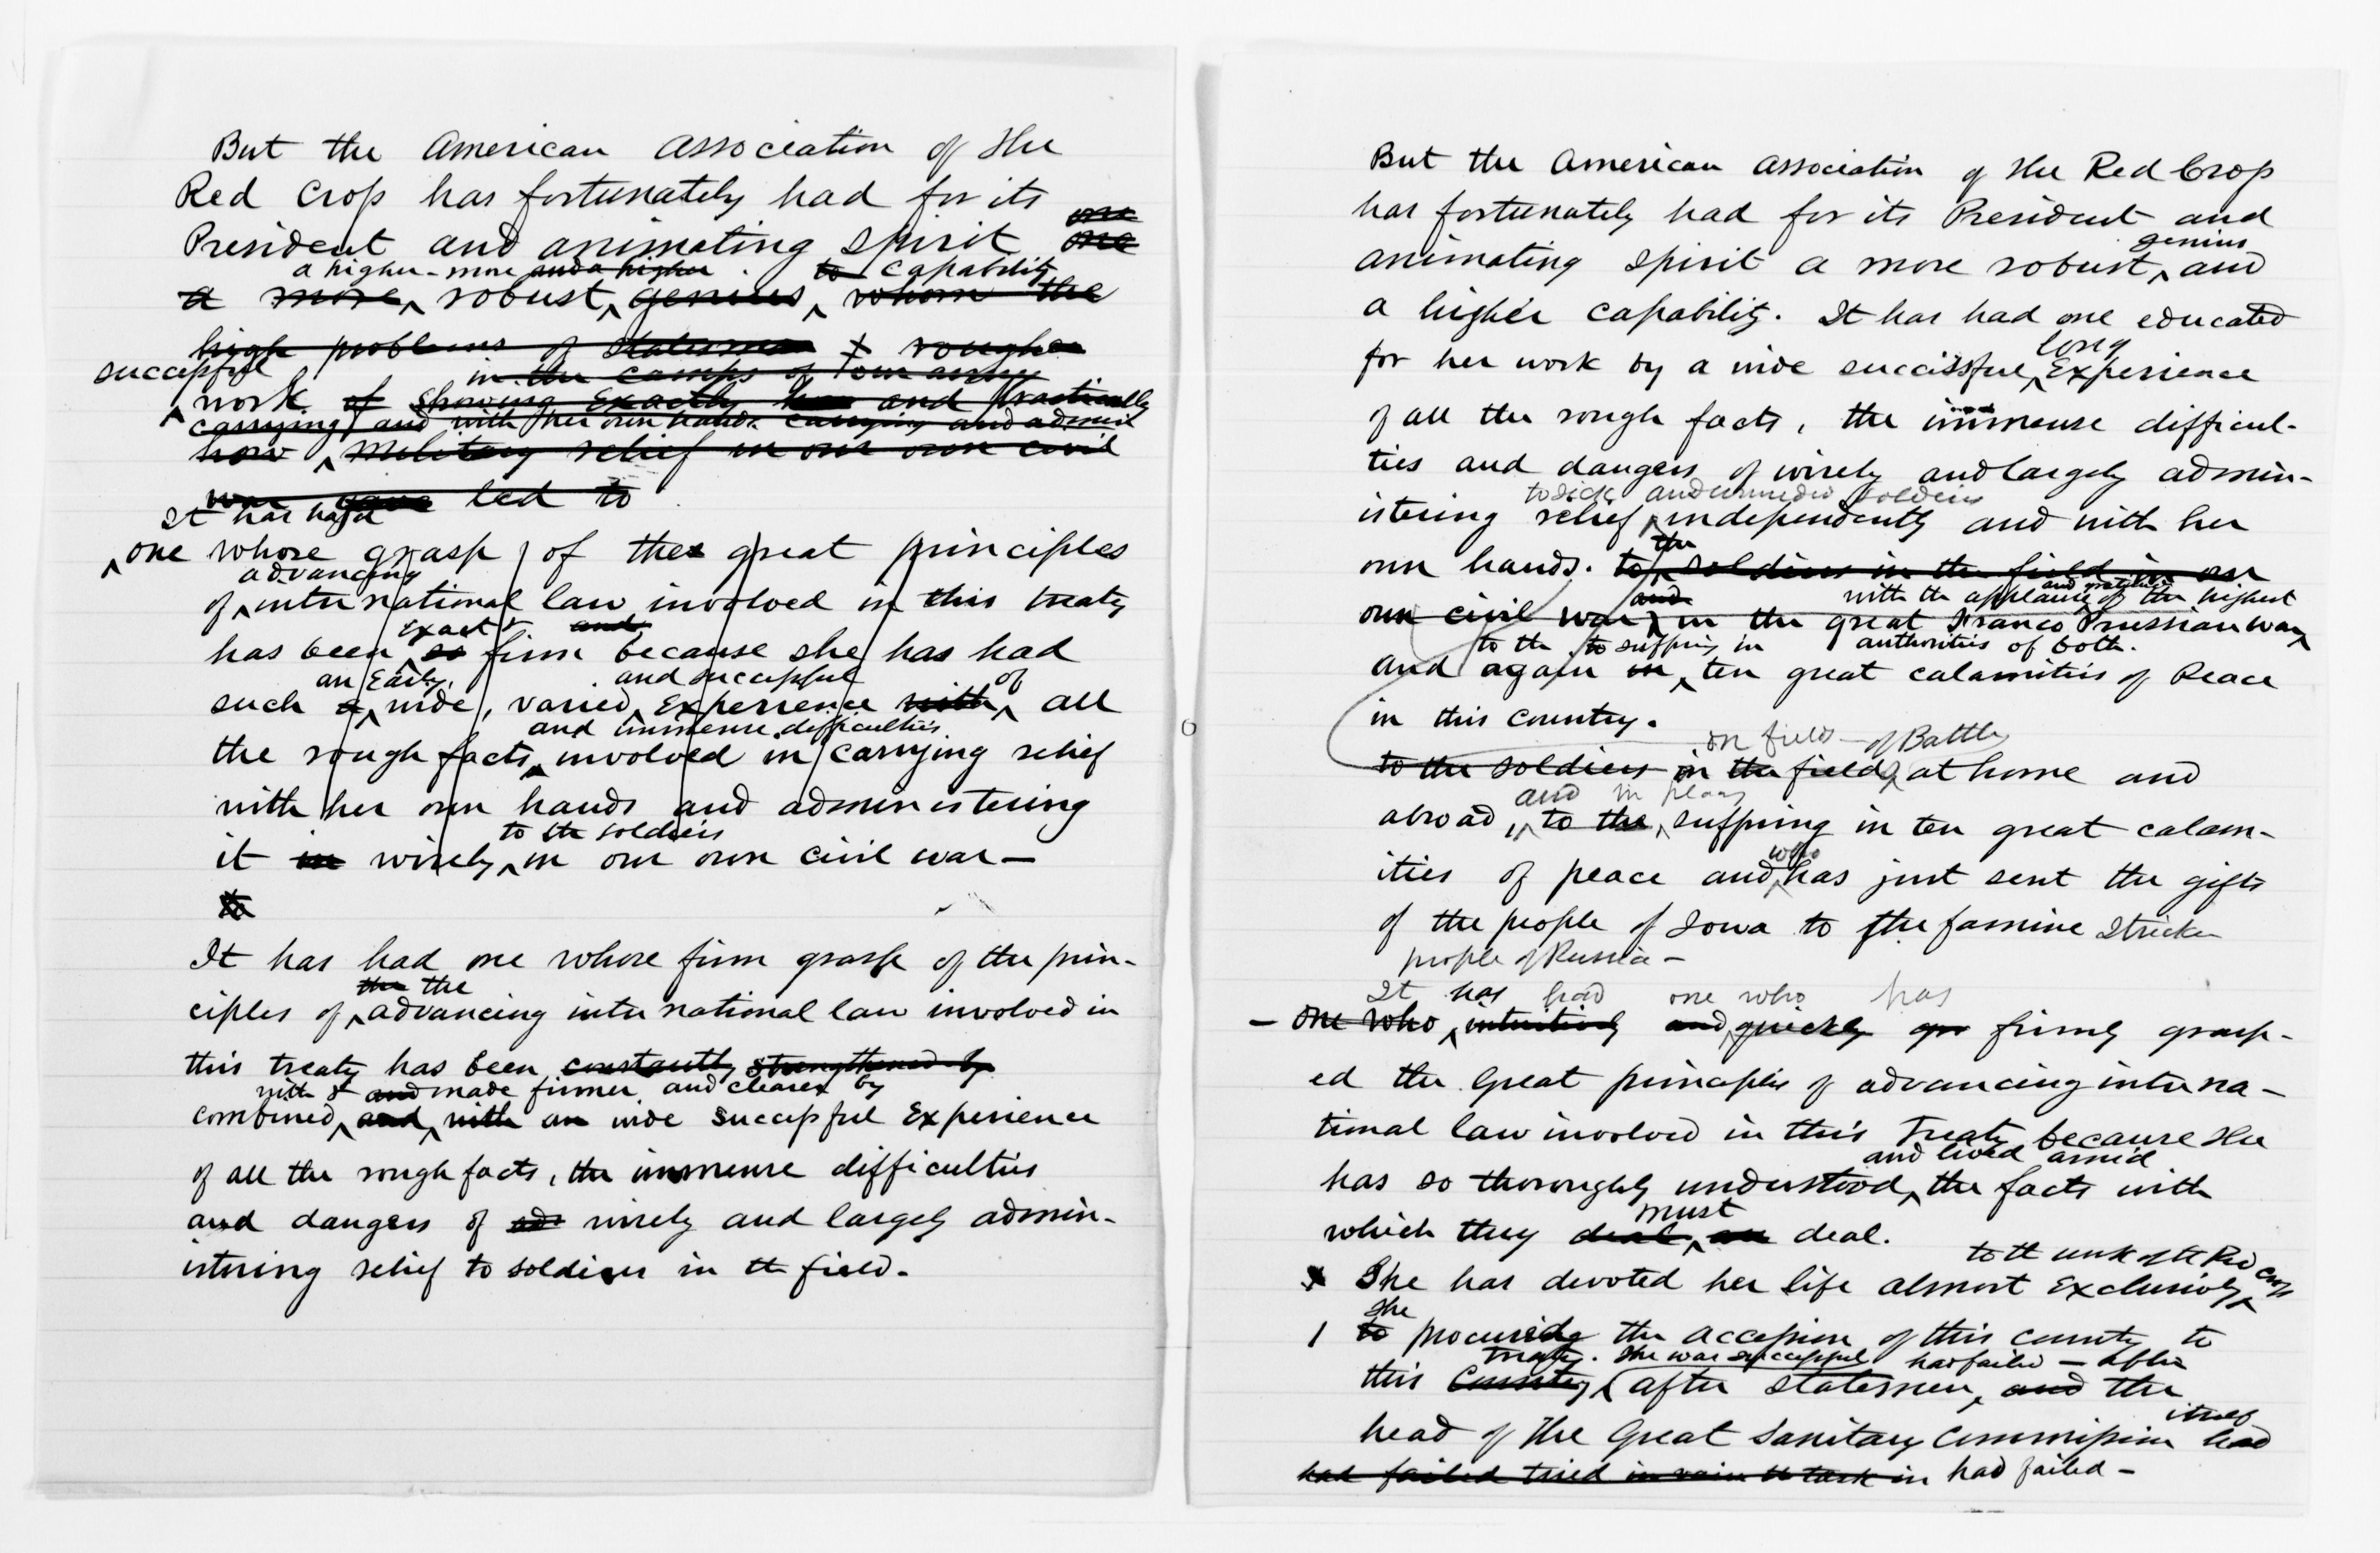 But the American Association of the
Red Cross has fortunately had for its
one
President and animating spirit one
a higher - more and a higher . to capability
a more robust, genius, whom the
high problems of statesmen & rougher
successful in the camps of our army
work of showing exactly how and practically
carrying and with her own hands carrying and admin
how military relief in our own civil
war gave led to
It has had
one whose grasp of the great principles
advancing
of international law involved in this treaty
exact & and
has been so firm because she has had
an Early, and successful of
such a wide, varied experience with all
and immense difficulties
the rough facts involved in carrying relief
with her own hands and administering
to the soldiers
it in wisely in our own civil war —
to
It has had one whose firm grasp of the prin-
the the
ciples of advancing international law involved in
this treaty has been constantly strengthened by
with & and made firmer and clearer by
combined and with an wide successful Experience
of all the rough facts, the immense difficulties
and dangers of ad wisely and largely admin-
istering relief to soldiers in the field.
But the American Association of the Red Cross
has fortunately had for its President and
genius
animating spirit a more robust, and
a higher capability. It has had one educated
long
for her work by a wide successful Experience
of all the rough facts, the immense difficul-
ties and dangers of wisely and largely admin-
to sick and wounded soldiers
istering relief independently and with her
the
own hands. to soldiers in the field in our
and gratitude
and with the applause of the highest
own civil war, in the great Franco Prussian War
to the to suffering in authorities of both.
and again in ten great calamities of Peace
in this country.
on field of Battle
to the soldiers in the field, at home and
and in
abroad, to the suffering in ten great calam-
who
ities of peace and has just sent the gifts
of the people of Iowa to the famine stricken
people of Russia —
It has had one who has
— one who intuitively and quickly firmly grasp-
ed the Great principles of advancing interna-
tional law involved in this Treaty because she
and lived amid
has so thoroughly understood, the facts with
must
which they deal deal.
to the work of the Red Cross
She has devoted her life almost Exclusively
she
to procured the accession of this country to
treaty. She was successful had failed — after
this Country (after statesmen, and the
itself
head of the Great Sanitary Commission had
had failed tried in vain the task in had failed —